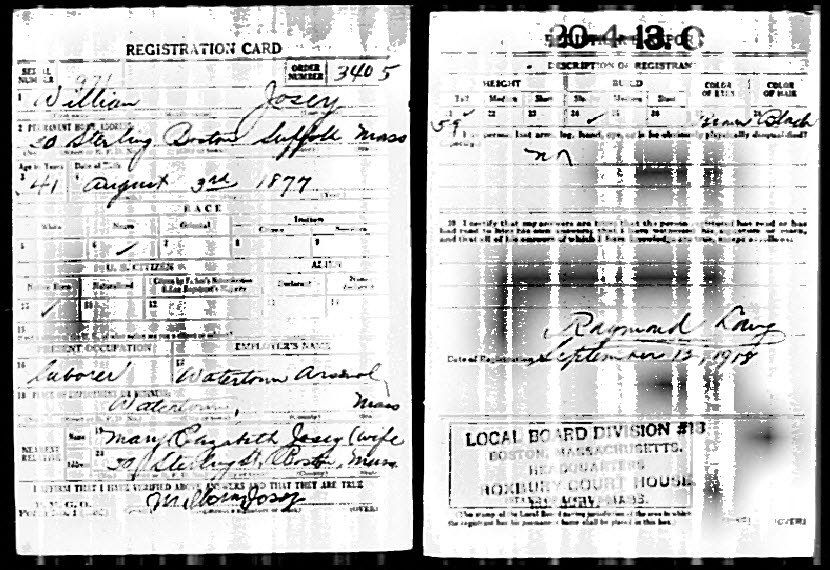 REGISTRATION CARD
SERIAL NUMBER 971 ORDER NUMBER 3405
1 William Josey
2 PERMANENT HOME ADDRESS
50 Sterling Boston Suffolk Mass
Age in Years Date of Birth
3 41 4 August 3rd 1877
RACE
White Negro Oriental Indian
Citizen
5 6 ✓ 7 8 9
U. S. CITIZEN ALIEN
Native Born Naturalized Citizen by Father's Naturalization Before Registrant's Majority Declarant
10 ✓ 11 12 13 14
15
PRESENT OCCUPATION EMPLOYER'S NAME
16 Laborer 17 Watertown Arsenal
18 PLACE OF EMPLOYMENT OR BUSINESS
Watertown, Mass
NEAREST RELATIVE
Name 19 Mary Elizabeth Josey (wife
Address 20 50 Sterling St, Boston, Mass.
I AFFIRM THAT I HAVE VERIFIED ABOVE ANSWERS AND THAT THEY ARE TRUE
P. M. G. O.
William Josey
(OVER)
20-4-13. C
DESCRIPTION OF REGISTRANT
HEIGHT BUILD COLOR OF EYES COLOR OF HAIR
Tall Medium Short Slender Medium Stout
21 22 23 24 ✓ 25 26
5 9 Brown Black
29 Has person lost arm, leg, hand, eye, or is he obviously physically disqualified?
(Specify.)
no
30 I certify that my answers are true; that the person registered has read or has
had read to him his own answers; that I have witnessed his signature or mark,
and that all of his answers of which I have knowledge are true, except as follows:
Raymond
Date of Registration September 12, 1918
LOCAL BOARD DIVISION #13
BOSTON, MASSACHUSETTS.
HEADQUARTERS
ROXBURY COURT HOUSE.
ROXBURY, MASS.
(The stamp of the Local Board having jurisdiction of the area in which
the registrant has his permanent home shall be placed in this box.)
(OVER)